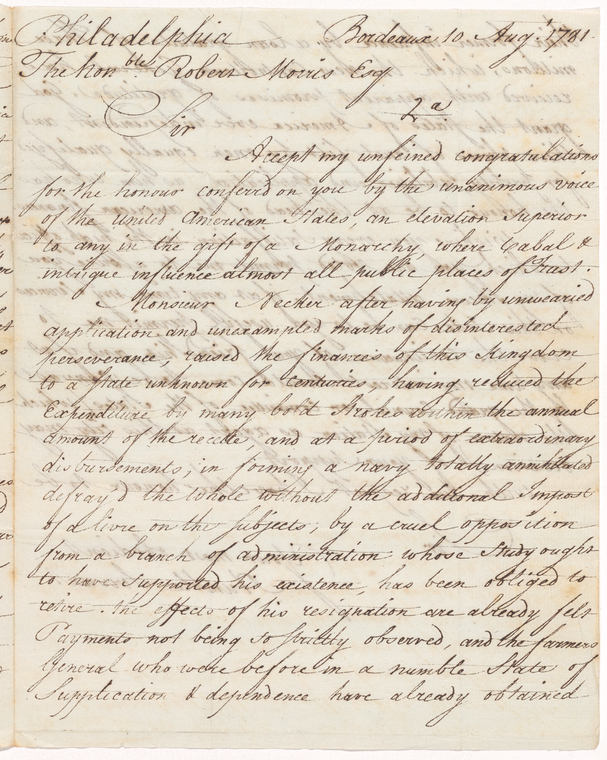 Philadelphia Bordeaux 10 Augt. 1781.
The Honble. Robert Morris Esq
2a
Sir
Accept my unfeined congratulations
for the honour conferrd on you by the unanimous voice
of the united American States, an elevation superior
to any in the gift of a Monarchy, where Cabal &
intrigue influence almost all public places of Trust.
Monsieur Necker after having by unwearied
application and unexampled marks of disinterested
perseverance, raised the finances of this Kingdom
to a state unknown for centuries, having reduced the
Expenditure by many bold strokes within the annual
amount of the recette, and at a period of extraordinary
disbursements, in forming a navy totally annihilated
defray'd the whole without the additional Impost
of a livre on the subjects, by a cruel opposition
from a branch of administration whose study ought
to have supported his existence, has been obliged to
retire. the effects of his resignation are already felt
Payments not being so strictly observed, and the farmers
General who were before in a humble state of
Supplication & dependence have already obtained